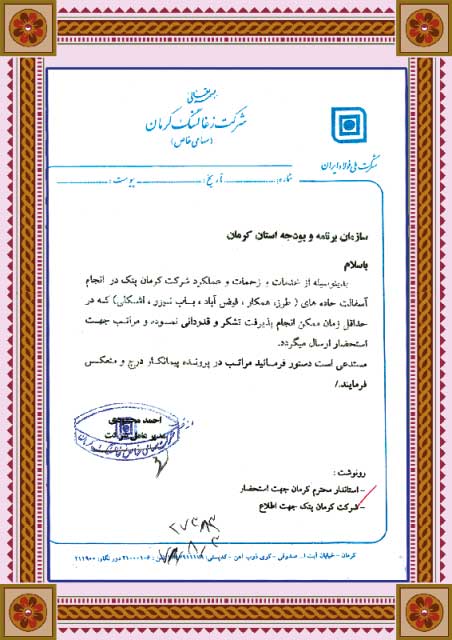 بسمه تعالی
شرکت زغالسنگ کرمان
(سهامی خاص)
شرکت ملی فولاد ایران
شماره: تاریخ: پیوست:
سازمان برنامه و بودجه استان کرمان
باسلام
بدینوسیله از خدمات و زحمات و عملکرد شرکت کرمان پتک در انجام
آسفالت جاده های ( طرز، همکار ، فیض آباد ، باب نیزو ، اشکلی) که در
حداقل زمان ممکن انجام پذیرفت تشکر و قدردانی نموده و مراتب جهت
استحضار ارسال میگردد.
مستدعی است دستور فرمائید مراتب در پرونده پیمانکار درج و منعکس
فرمایند./
احمد
مدیر عامل شرکت
رونوشت :
- استاندار محترم کرمان جهت استحضار
- شرکت کرمان پتک جهت اطلاع
۲۷۴۸۳
کرمان - خیابان آیت ا.. صدوقی - کوی ذوب آهن - کدپستی: تلفن: ۶-۲۱۰۰۰۱ دور نگار: ۲۱۱۹۰۰